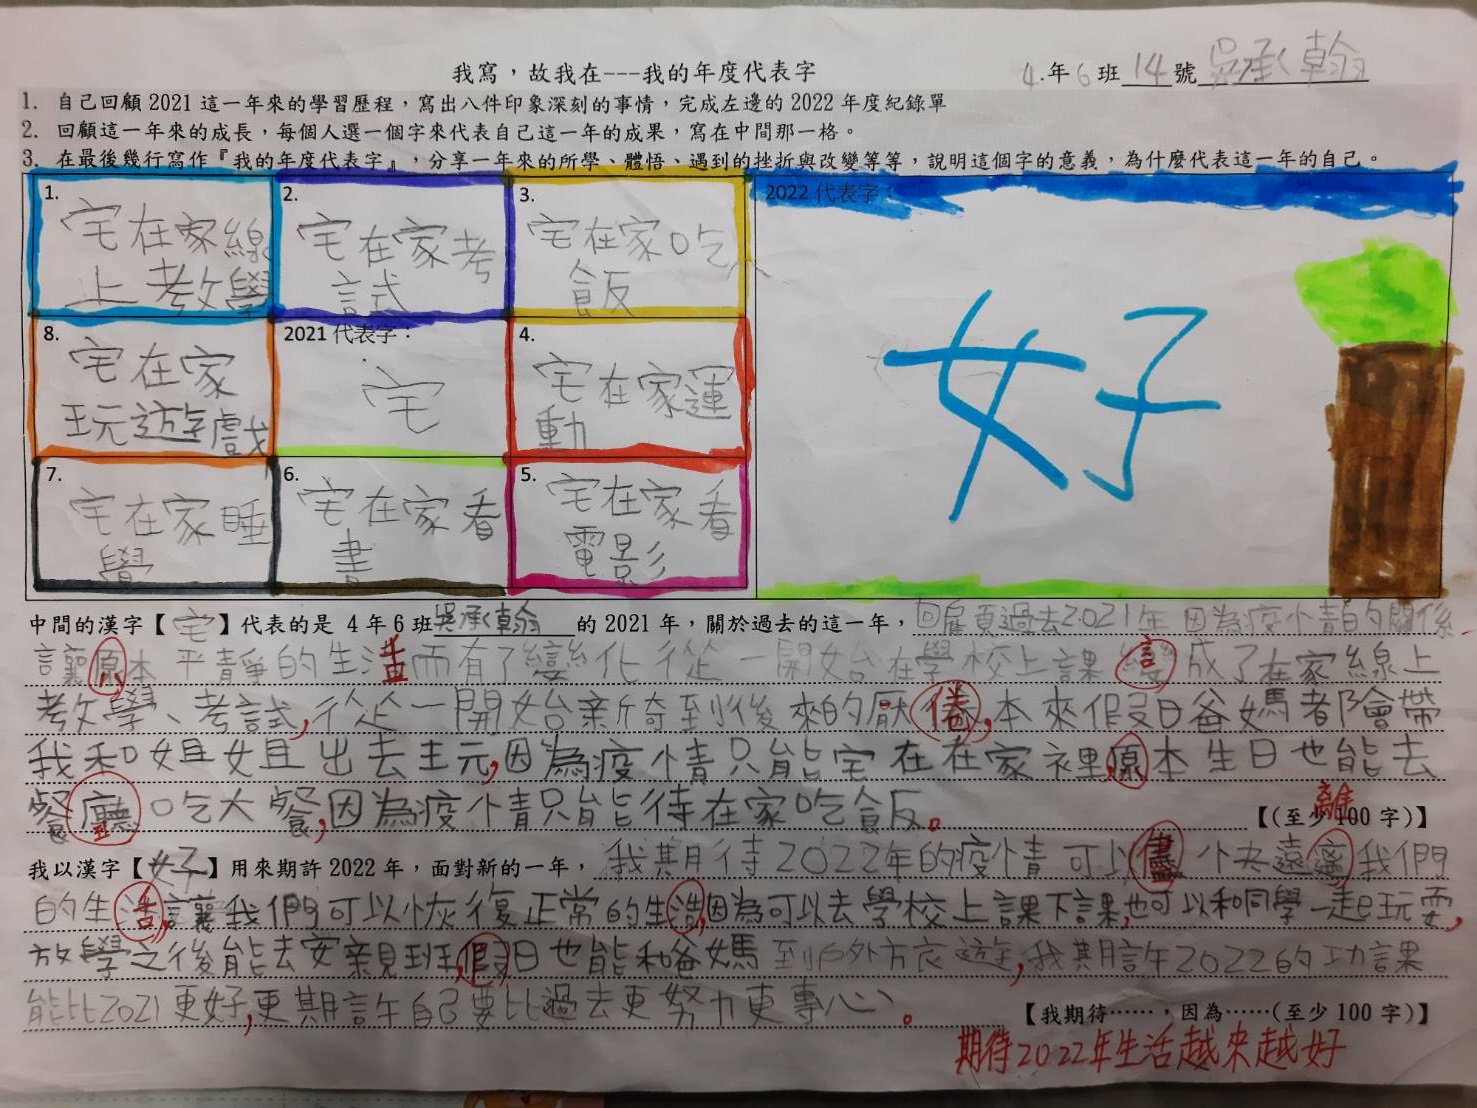 我寫，故我在---我的年度代表字
4.年6班14號吳承翰
1. 自己回顧 2021 這一年來的學習歷程，寫出八件印象深刻的事情，完成左邊的 2022 年度紀錄單
2. 回顧這一年來的成長，每個人選一個字來代表自己這一年的成果，寫在中間那一格。
3. 在最後幾行寫作『我的年度代表字』，分享一年來的所學、體悟、遇到的挫折與改變等等，說明這個字的意義，為什麼代表這一年的自己。
1.
宅在家線
上教學
2.
宅在家考
試
3.
宅在家吃
飯
2022 代表字：
好
8.
宅在家
玩遊戲
2021 代表字：
宅
4.
宅在家運
動
7.
宅在家睡
覺
6.
宅在家看
書
5.
宅在家看
電影
中間的漢字【宅】代表的是 4 年 6 班吳承翰的 2021 年，關於過去的這一年，回顧過去2021年因為疫情的關係
讓原本平靜的生活而有了變化從一開始在學校上課變成了在家線上
教學、考試,從一開始新奇到後來的厭倦,本來假日爸媽都會帶
我和姐姐出去玩,因為疫情只能宅在在家裡,原本生日也能去
餐廳吃大餐,因為疫情只能待在家吃飯。
【(至少 100 字)】
離
我以漢字【好】用來期許 2022 年，面對新的一年，我期待2022年的疫情可以儘快遠我們
的生活,讓我們可以恢復正常的生活,因為可以去學校上課下課,也可以和同學一起玩耍,
放學之後能去安親班,假日也能和爸媽到戶外方衣遊,我期許2022的功課
能比2021更好,更期許自己要比過去更努力更專心。
【我期待……，因為……(至少 100 字)】
期待2022年生活越來越好